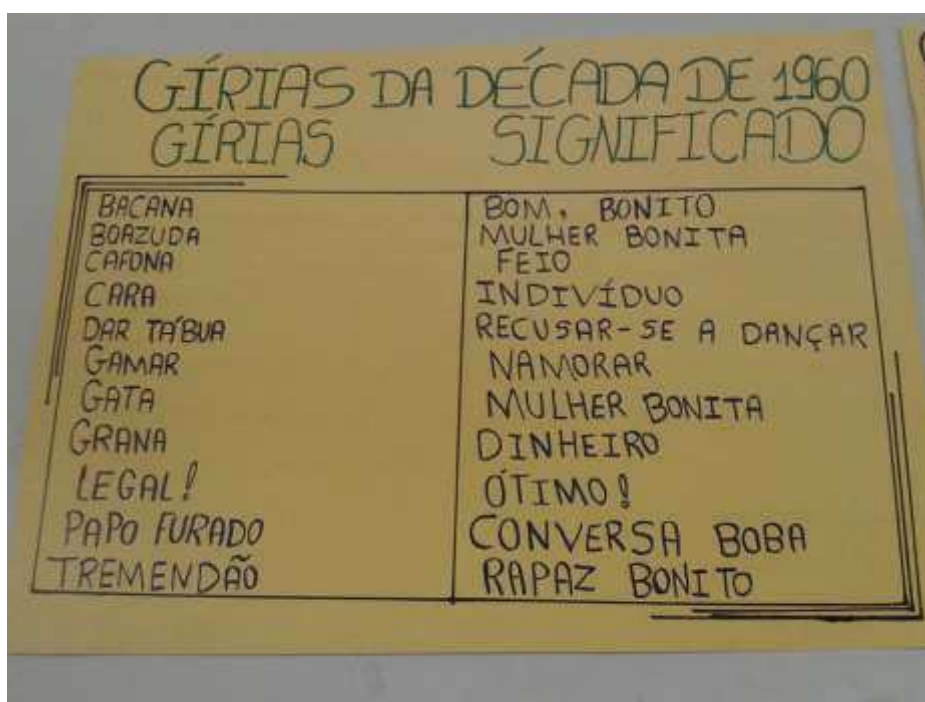 GÍRIAS DA DÉCADA DE 1960
GÍRIAS SIGNIFICADO
BACANA BOM, BONITO
BOAZUDA MULHER BONITA
CAFONA FEIO
CARA INDIVÍDUO
DAR TÁBUA RECUSAR-SE A DANÇAR
GAMAR NAMORAR
GATA MULHER BONITA
GRANA DINHEIRO
LEGAL! ÓTIMO!
PAPO FURADO CONVERSA BOBA
TREMENDÃO RAPAZ BONITO